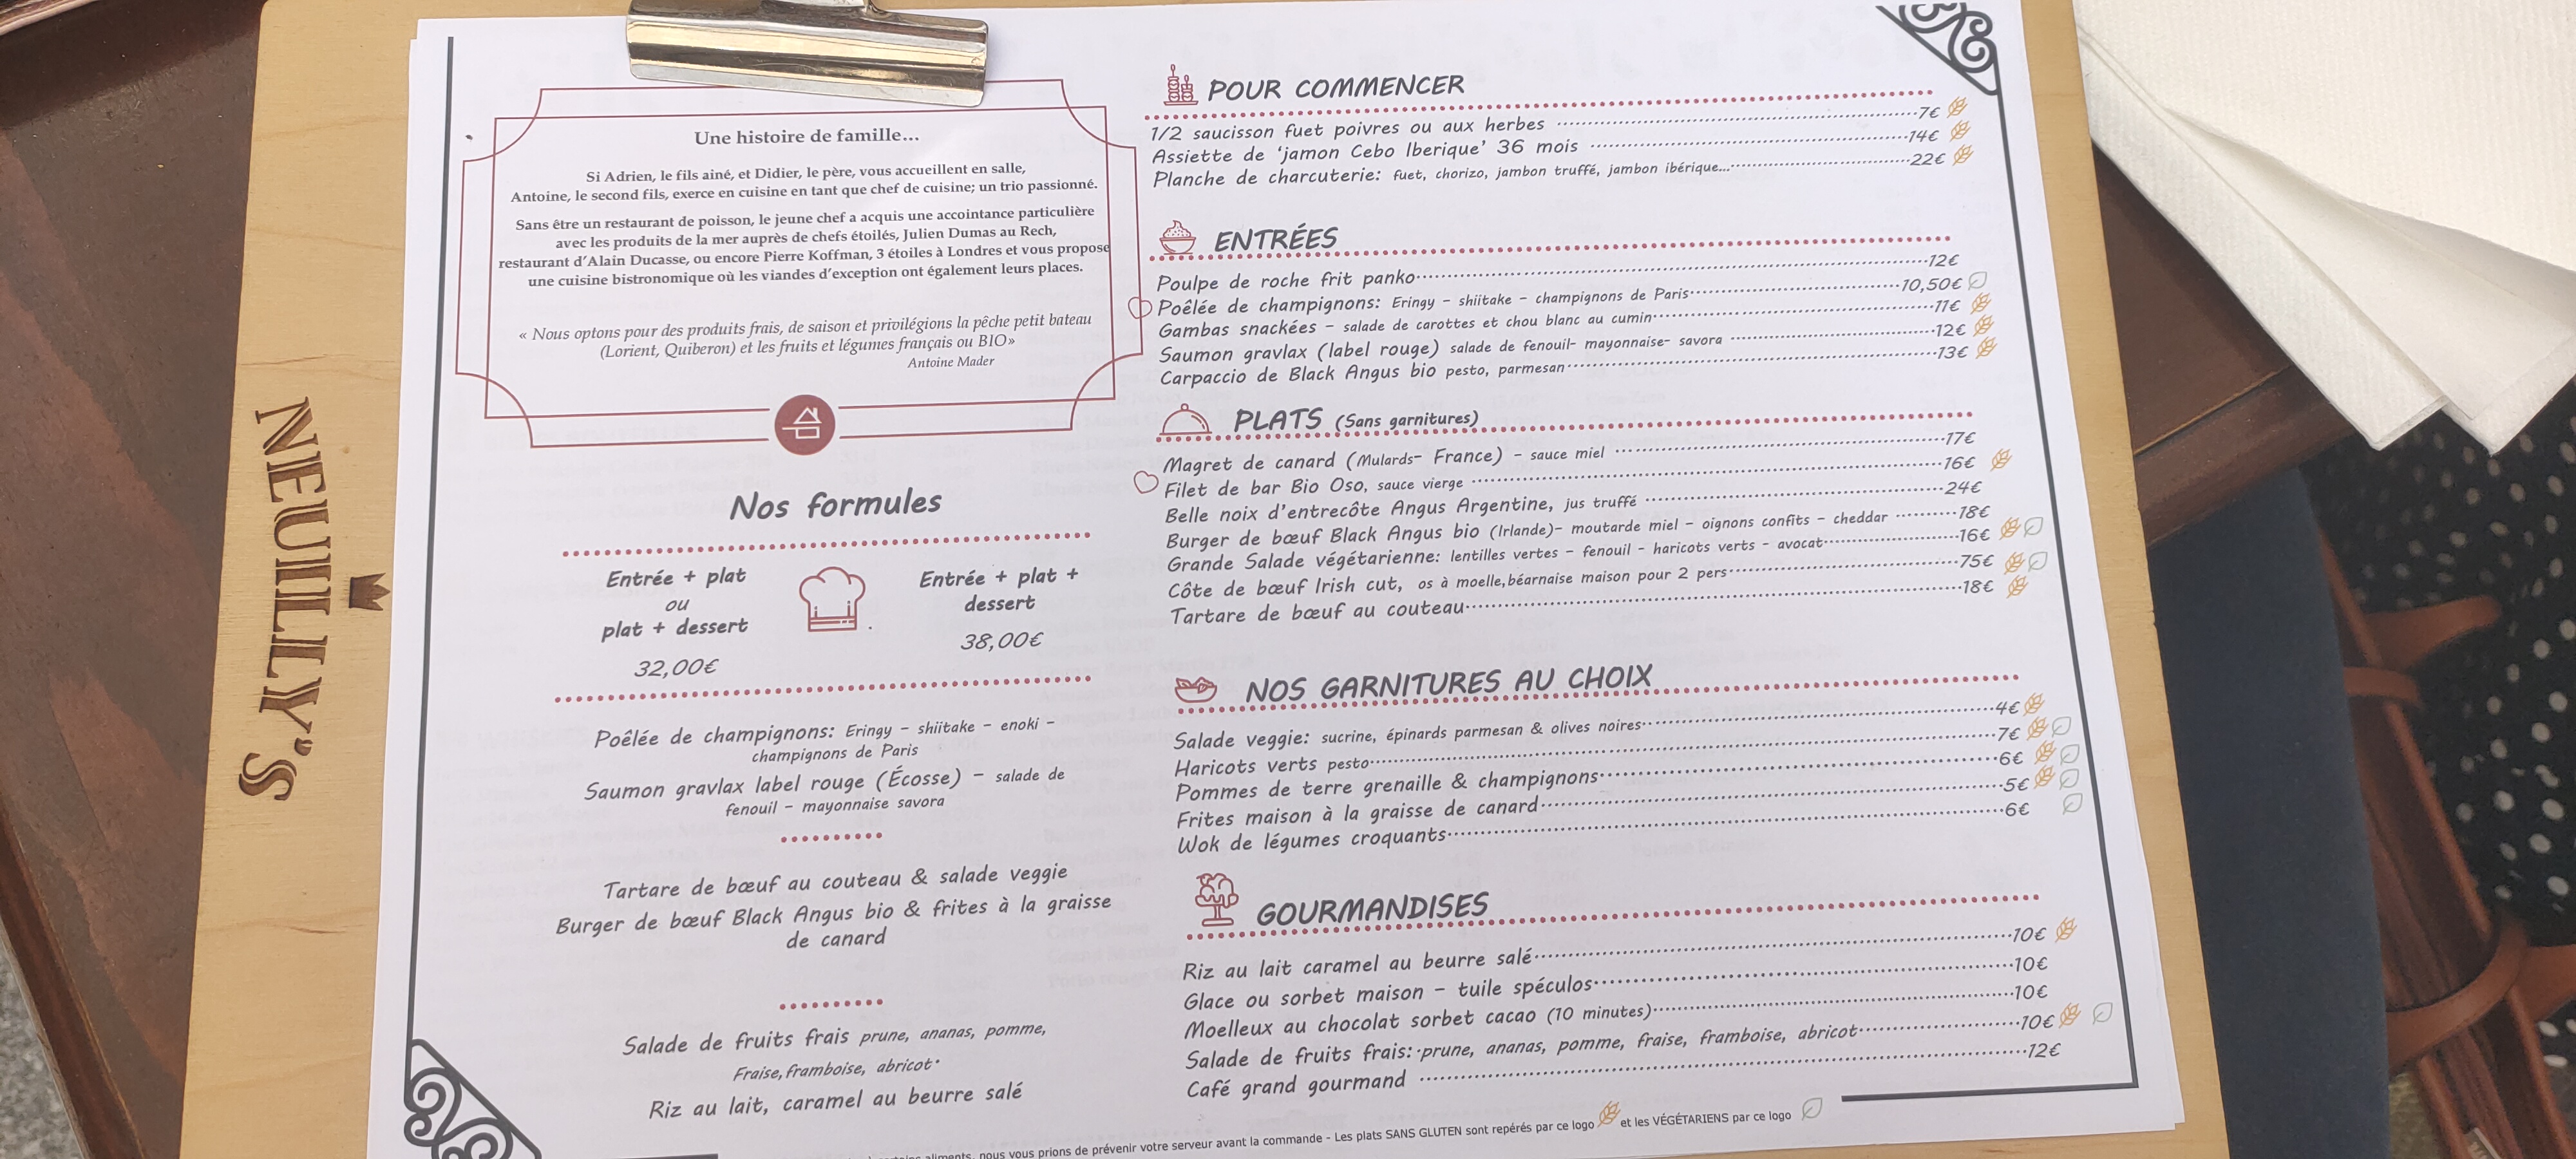 NEUILLY'S
Une histoire de famille...
Si Adrien, le fils ainé, et Didier, le père, vous accueillent en salle,
Antoine, le second fils, exerce en cuisine en tant que chef de cuisine; un trio passionné.
Sans être un restaurant de poisson, le jeune chef a acquis une accointance particulière
avec les produits de la mer auprès de chefs étoilés, Julien Dumas au Rech,
restaurant d'Alain Ducasse, ou encore Pierre Koffman, 3 étoiles à Londres et vous propose
une cuisine bistronomique où les viandes d'exception ont également leurs places.
« Nous optons pour des produits frais, de saison et privilégions la pêche petit bateau
(Lorient, Quiberon) et les fruits et légumes français ou BIO»
Antoine Mader
Nos formules
Entrée + plat
ou
plat + dessert
32,00€
Entrée + plat +
dessert
38,00€
Poêlée de champignons: Eringy - shiitake - enoki -
champignons de Paris
Saumon gravlax label rouge (Écosse) - salade de
fenouil - mayonnaise savora
Tartare de bœuf au couteau & salade veggie
Burger de bœuf Black Angus bio & frites à la graisse
de canard
Salade de fruits frais prune, ananas, pomme,
Fraise, framboise, abricot
Riz au lait, caramel au beurre salé
POUR COMMENCER
1/2 saucisson fuet poivres ou aux herbes 7€
Assiette de 'jamon Cebo Iberique' 36 mois 14€
Planche de charcuterie: fuet, chorizo, jambon truffé, jambon ibérique... 22€
ENTRÉES
Poulpe de roche frit panko 12€
Poêlée de champignons: Eringy - shiitake - champignons de Paris 10,50€
Gambas snackées - salade de carottes et chou blanc au cumin 11€
Saumon gravlax (label rouge) salade de fenouil- mayonnaise- savora 12€
Carpaccio de Black Angus bio pesto, parmesan 13€
PLATS (Sans garnitures)
Magret de canard (Mulards- France) - sauce miel 17€
Filet de bar Bio Oso, sauce vierge 16€
Belle noix d'entrecôte Angus Argentine, jus truffé 24€
Burger de bœuf Black Angus bio (Irlande)- moutarde miel - oignons confits - cheddar 18€
Grande Salade végétarienne: lentilles vertes - fenouil - haricots verts - avocat 16€
Côte de bœuf Irish cut, os à moelle,béarnaise maison pour 2 pers 75€
Tartare de bœuf au couteau 18€
NOS GARNITURES AU CHOIX
Salade veggie: sucrine, épinards parmesan & olives noires 4€
Haricots verts pesto 7€
Pommes de terre grenaille & champignons 6€
Frites maison à la graisse de canard 5€
Wok de légumes croquants 6€
GOURMANDISES
Riz au lait caramel au beurre salé 10€
Glace ou sorbet maison - tuile spéculos 10€
Moelleux au chocolat sorbet cacao (10 minutes) 10€
Salade de fruits frais: prune, ananas, pomme, fraise, framboise, abricot 10€
Café grand gourmand 12€
aliments, nous vous prions de prévenir votre serveur avant la commande - Les plats SANS GLUTEN sont repérés par ce logo et les VÉGÉTARIENS par ce logo